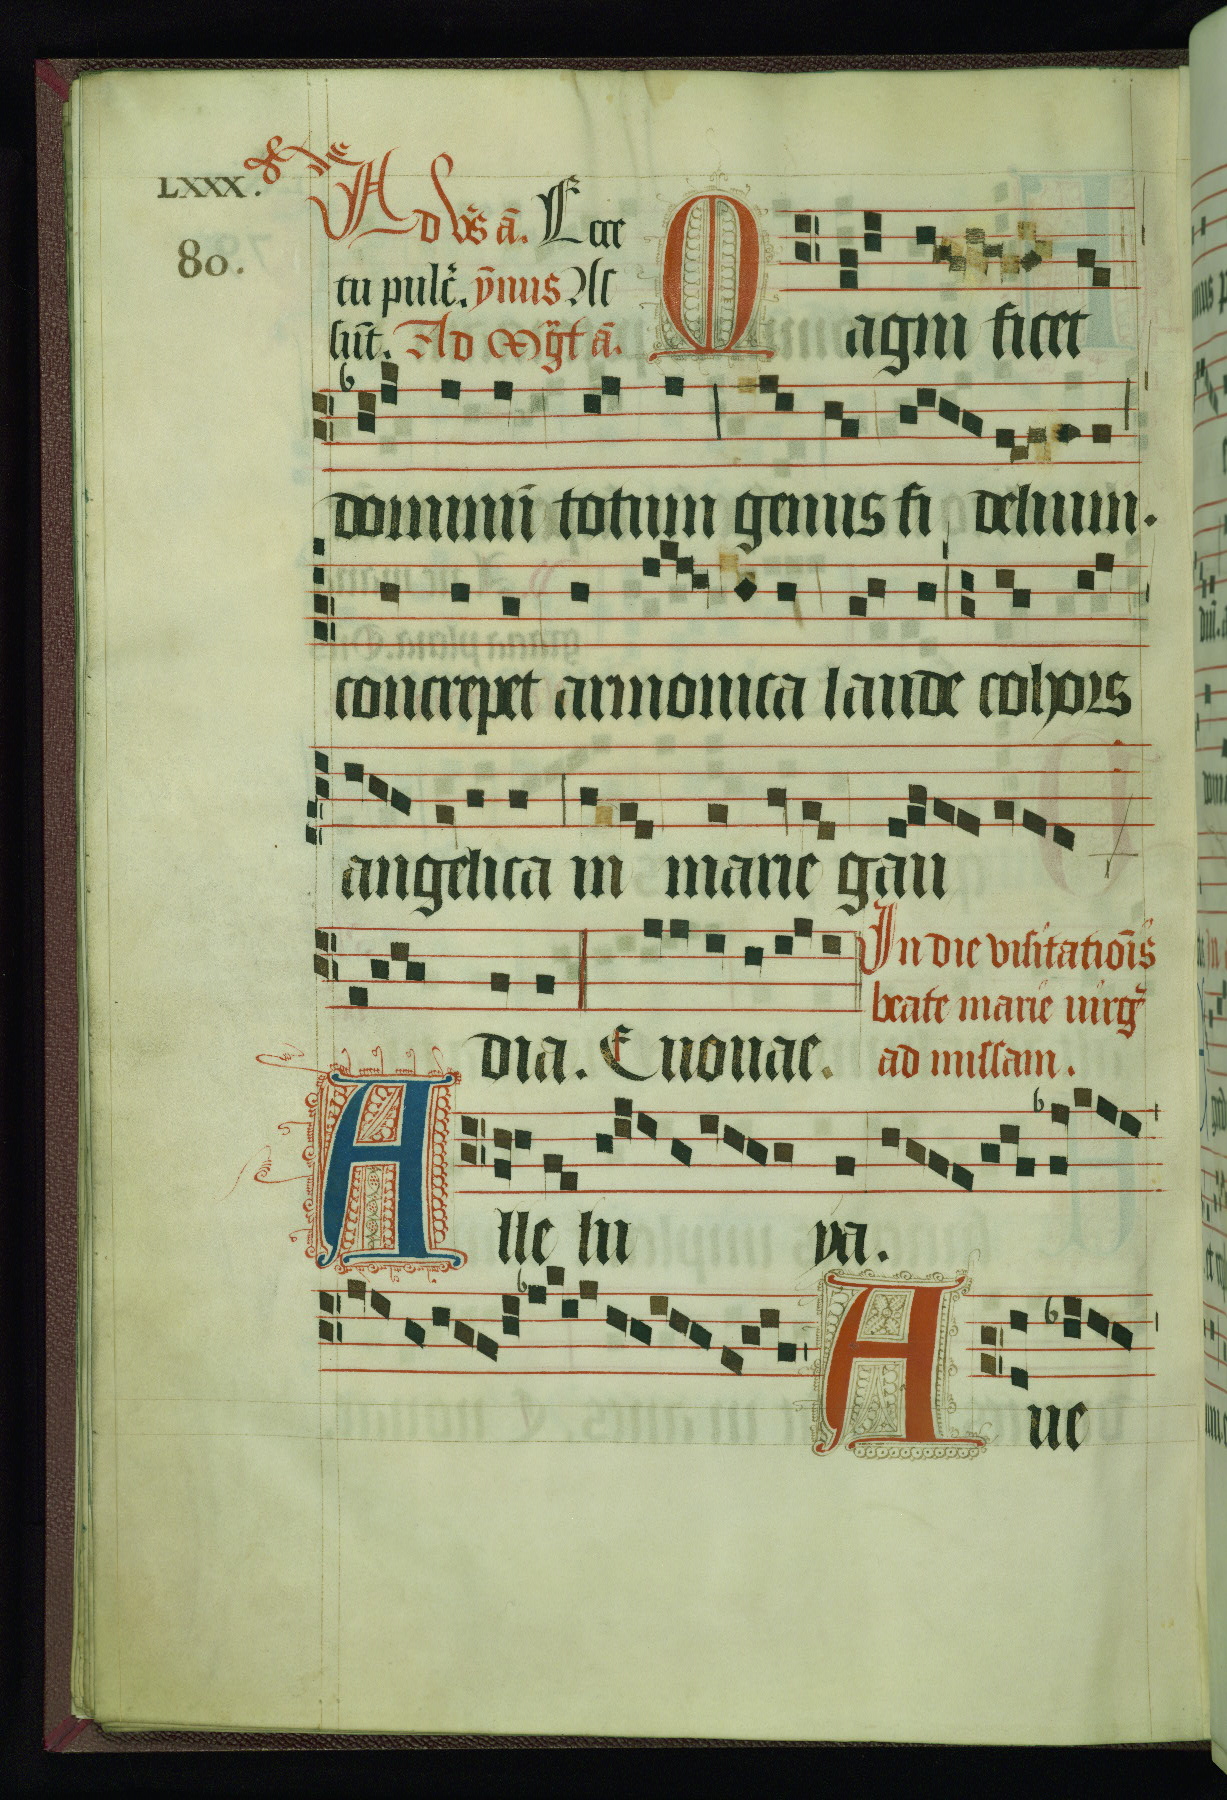 LXXX.
80.
Ad vs̄ ā. Ecce
tu pulc̄. ym̄nus Aſ
ſūt. Ad Mgt̄ ā.
Magni ficet
dominū totum genus fi delium.
concrepet armonica laude cohors
angelica in marie gau
dia. Euouae.
In die viſitatiōis
beate marie uirḡ
ad miſſam.
Alle lu ya.
Aue